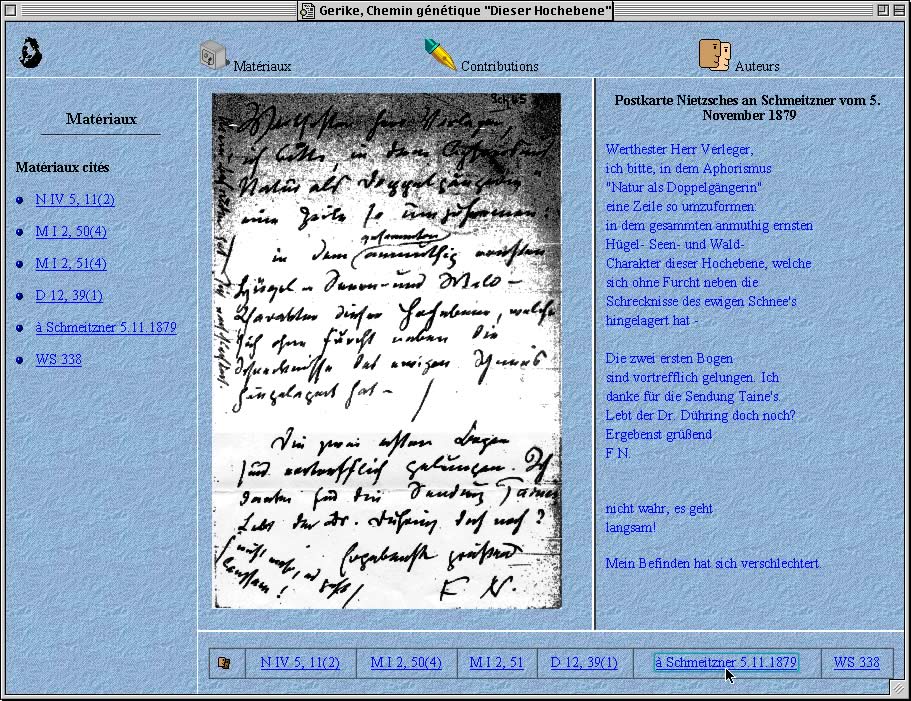 Gerike, Chemin génétique "Dieser Hochebene"
Matériaux
Contributions
Auteurs
Matériaux
Matériaux cités
N IV 5, 11(2)
M I 2, 50(4)
M I 2, 51(4)
D 12, 39(1)
à Schmeitzner 5.11.1879
WS 338
Werthester Herr Verleger,
ich bitte, in dem Aphorismus
"Natur als Doppelgängerin"
eine Zeile so umzuformen:
gesammten
in dem anmuthig ernsten
Hügel- Seen- und Wald-
Charakter dieser Hochebene, welche
sich ohne Furcht neben die
Schrecknisse des ewigen Schnee's
hingelagert hat -
Die zwei ersten Bogen
sind vortrefflich gelungen. Ich
danke für die Sendung Taine's
Lebt der Dr. Dühring doch noch?
nicht wahr, es geht
langsam!
Ergebenst grüßend
F N.
Postkarte Nietzsches an Schmeitzner vom 5.
November 1879
Werthester Herr Verleger,
ich bitte, in dem Aphorismus
"Natur als Doppelgängerin"
eine Zeile so umzuformen:
in dem gesammten anmuthig ernsten
Hügel- Seen- und Wald-
Charakter dieser Hochebene, welche
sich ohne Furcht neben die
Schrecknisse des ewigen Schnee's
hingelagert hat -
Die zwei ersten Bogen
sind vortrefflich gelungen. Ich
danke für die Sendung Taine's.
Lebt der Dr. Dühring doch noch?
Ergebenst grüßend
F N.
nicht wahr, es geht
langsam!
Mein Befinden hat sich verschlechtert.
N IV 5, 11(2)
M I 2, 50(4)
M I 2, 51
D 12, 39(1)
à Schmeitzner 5.11.1879
WS 338